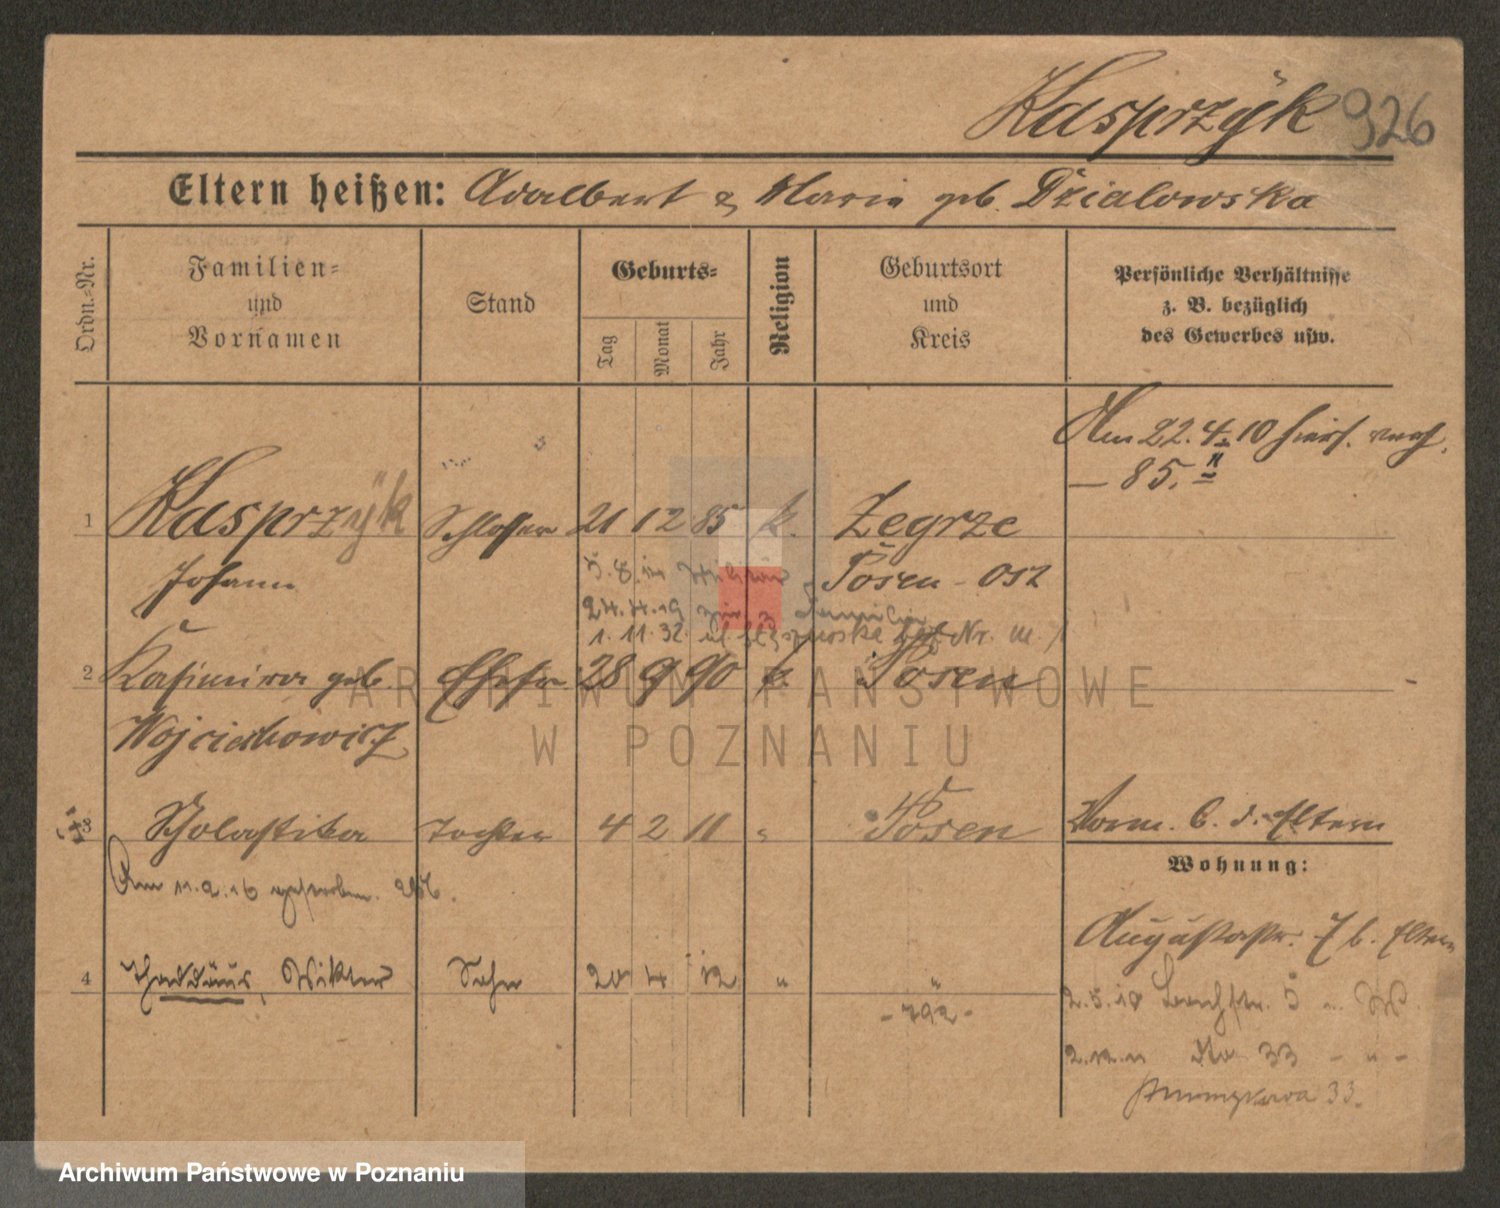 Kasprzÿk 926
Eltern heißen: Adalbert & Maria geb. Dzialowska
Ordn.-Nr.
Familien-
und
Vornamen
Stand
Geburts-
Tag
Monat
Jahr
Religion
Geburtsort
und
Kreis
Persönliche Verhältnisse
z. B. bezüglich
des Gewerbes usw.
Am 22. 4. 10 hiers.
– 85.
1 Kasprzÿk Schlosser 21 12 85 k. Zegrze
Johann Posen-Ost
24.4.19
1. 11. 32. ul. Nr. m. 1
2 Kasimira geb. Ehefr 28 9 90 k. Posen
Wojciechowicz
3 Scholastika Tochter 4 2 11 " Posen
Vorm. b. d. Eltern
Wohnung:
Am 11.2.16 gestorben. 256.
Augustastr. 7 b. Eltern
4 Thaddäus, Wiktor Sohn 20 4 12 " "
- 792 -
2.5.10 5
33 - " -
33.
ARCHIWUM PAŃSTWOWE
W POZNANIU
Archiwum Państwowe w Poznaniu